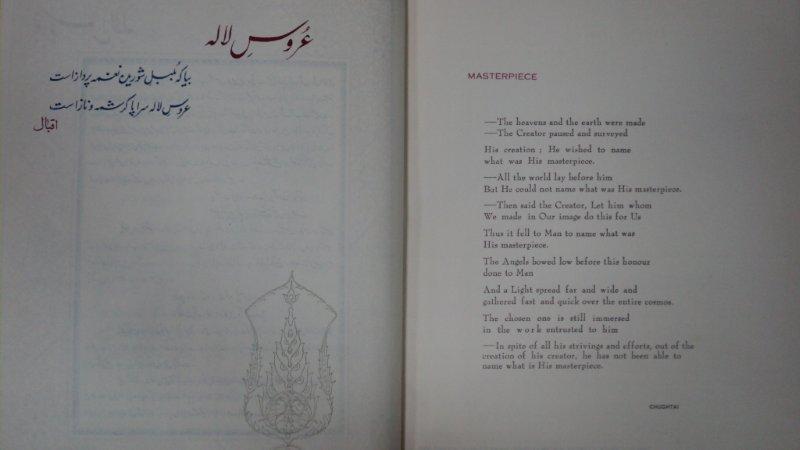 عُروسِ لالہ
بیا کہ بُلبلِ شوریدہ نغمہ پرداز است
عروسِ لالہ سراپا کرشمہ و ناز است
اقبال
MASTERPIECE
—The heavens and the earth were made
—The Creator paused and surveyed
His creation ; He wished to name
what was His masterpiece.
—All the world lay before him
But He could not name what was His masterpiece.
—Then said the Creator, Let him whom
We made in Our image do this for Us
Thus it fell to Man to name what was
His masterpiece.
The Angels bowed low before this honour
done to Man
And a Light spread far and wide and
gathered fast and quick over the entire cosmos.
The chosen one is still immersed
in the work entrusted to him
—In spite of all his strivings and efforts, out of the
creation of his creator, he has not been able to
name what is His masterpiece.
CHUGHTAI